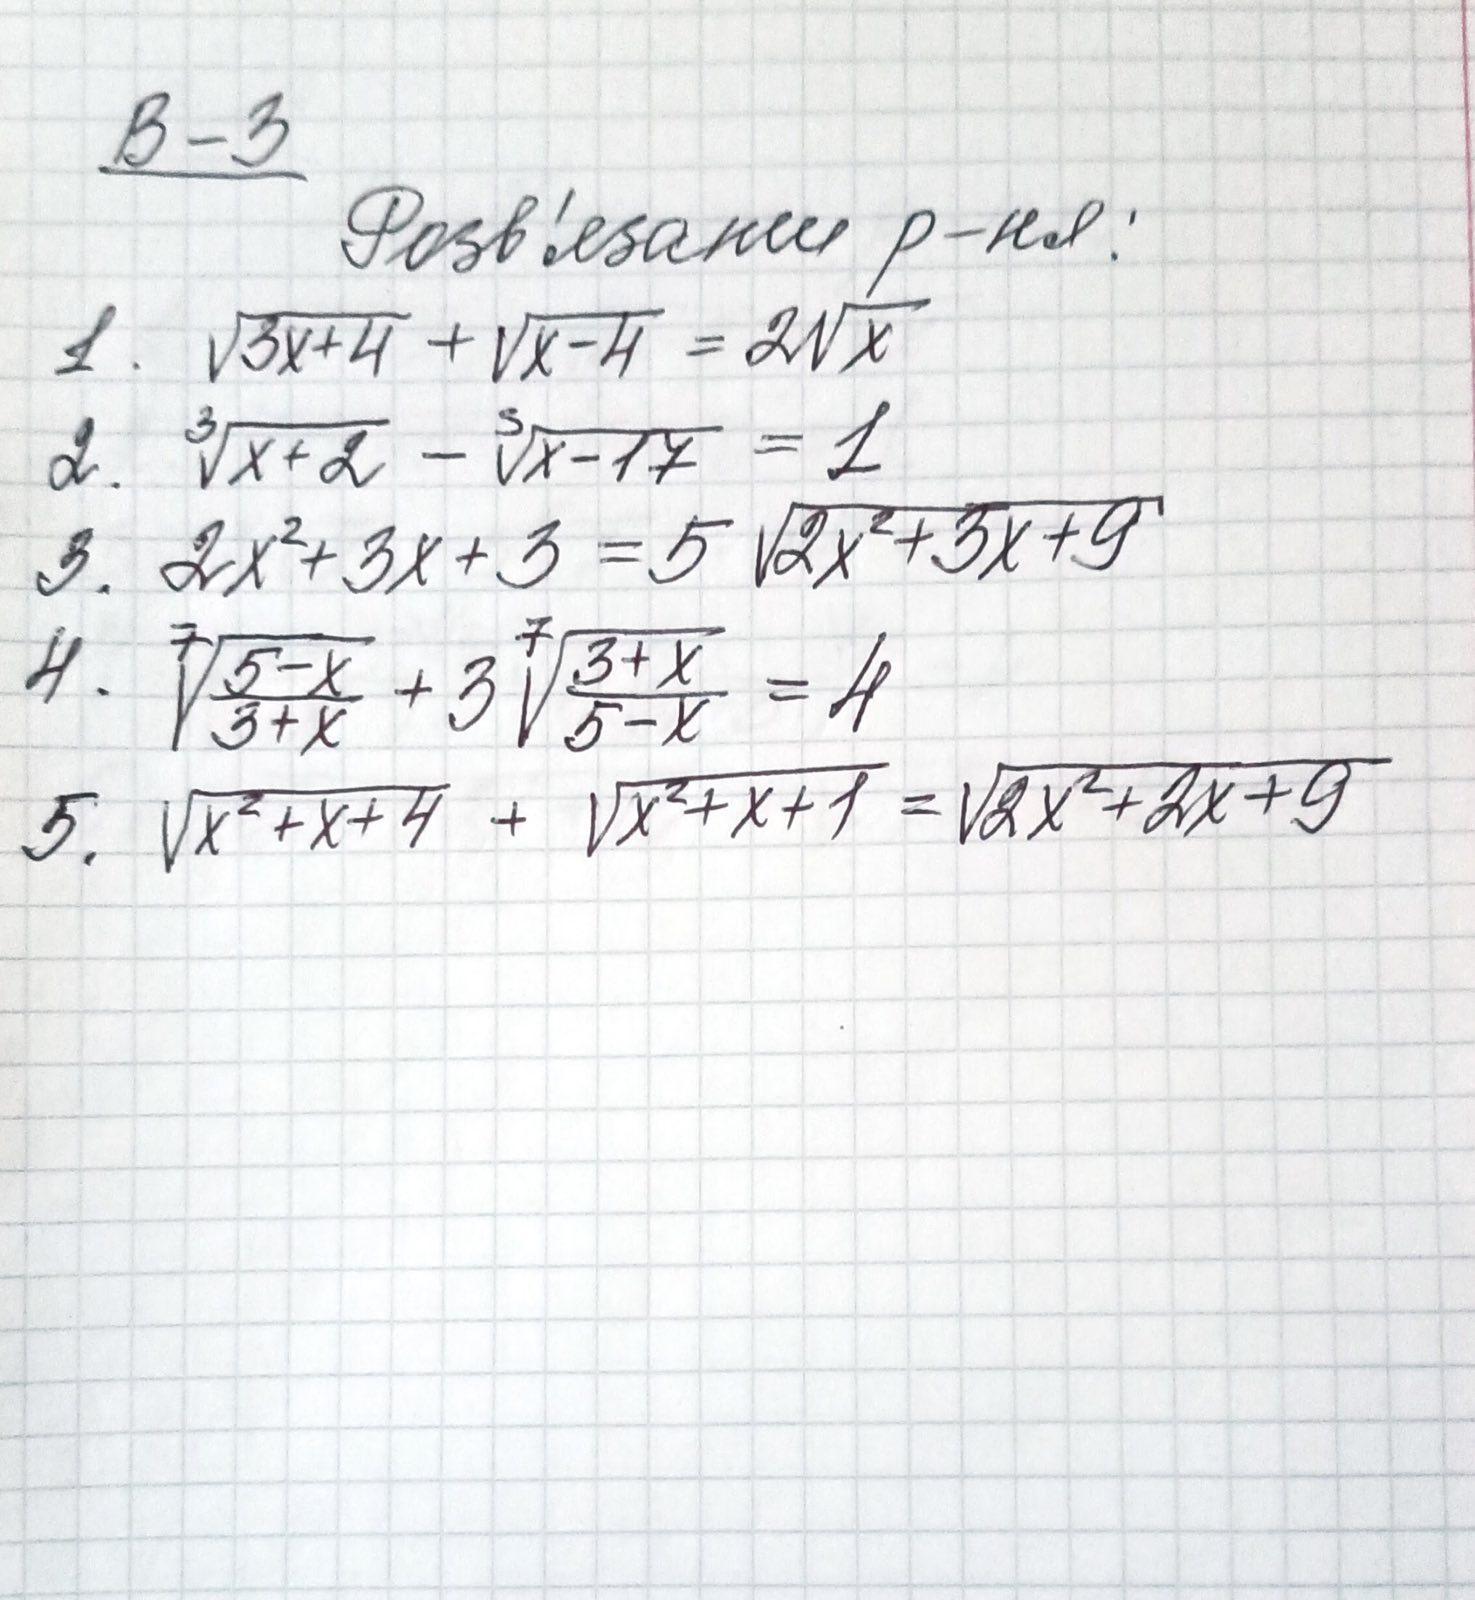 В-3
Розв'язати р-ня:
1. √(3x+4) + √(x-4) = 2√x
2. ∛(x+2) - ∛(x-17) = 1
3. 2x²+3x+3 = 5√(2x²+3x+9)
4. ⁷√((5-x)/(3+x)) + 3 ⁷√((3+x)/(5-x)) = 4
5. √(x²+x+4) + √(x²+x+1) = √(2x²+2x+9)